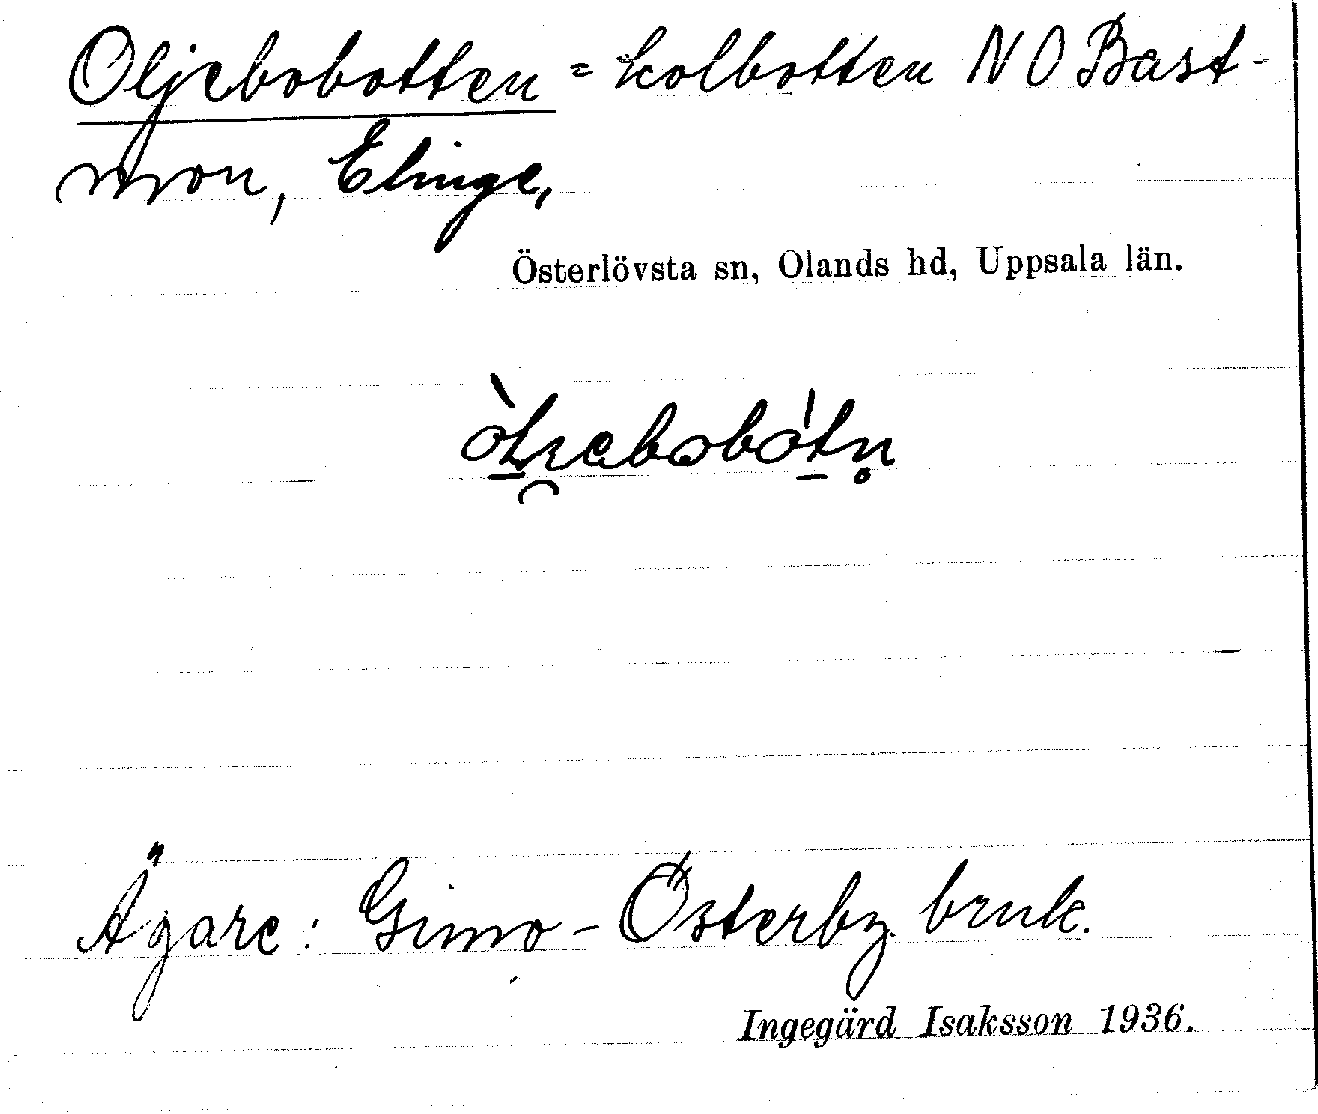 Oljebobotten = kolbotten NO Bast-
mon, Elinge,
Österlövsta sn, Olands hd, Uppsala län.
Ägare: Gimo-Österby bruk.
Ingegärd Isaksson 1936.